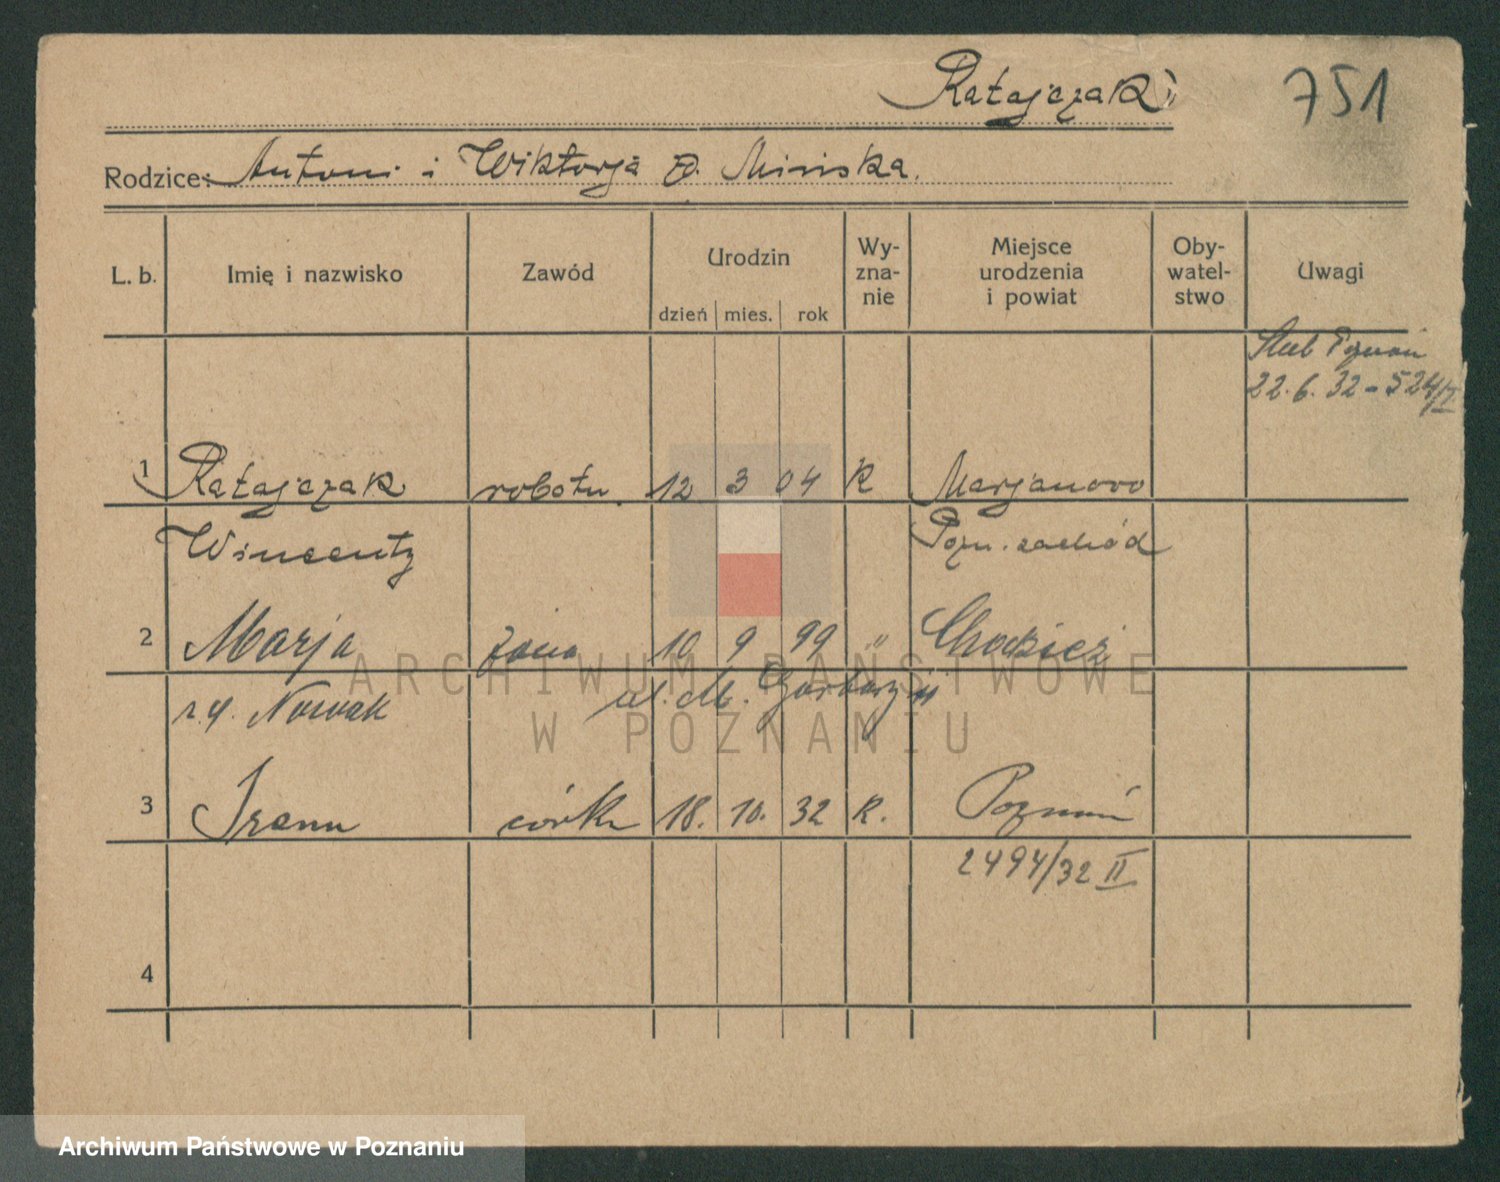 Ratajczak
751
Rodzice: Antoni i Wiktorja D. Mińska.
L. b.
Imię i nazwisko
Zawód
Urodzin
dzień mies. rok
Wy-
zna-
nie
Miejsce
urodzenia
i powiat
Oby-
watel-
stwo
Uwagi
Ślub Poznań
22.6.32-524/I
1 Ratajczak robotn. 12 3 04 K Marjanowo
Wincenty Pozn. zachód
2 Marja żona 10 9 99 " Chodzież
r.
Nowak ul. M. Garbary
3 Irena córka 18. 10. 32 K. Poznań
2494/32 II
4
ARCHIWUM PAŃSTWOWE
W POZNANIU
Archiwum Państwowe w Poznaniu